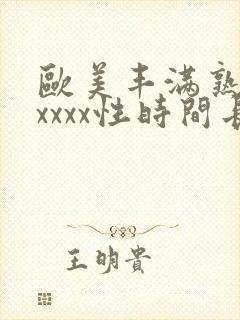 歐美丰滿熟
xxxx性時間長
王明貴